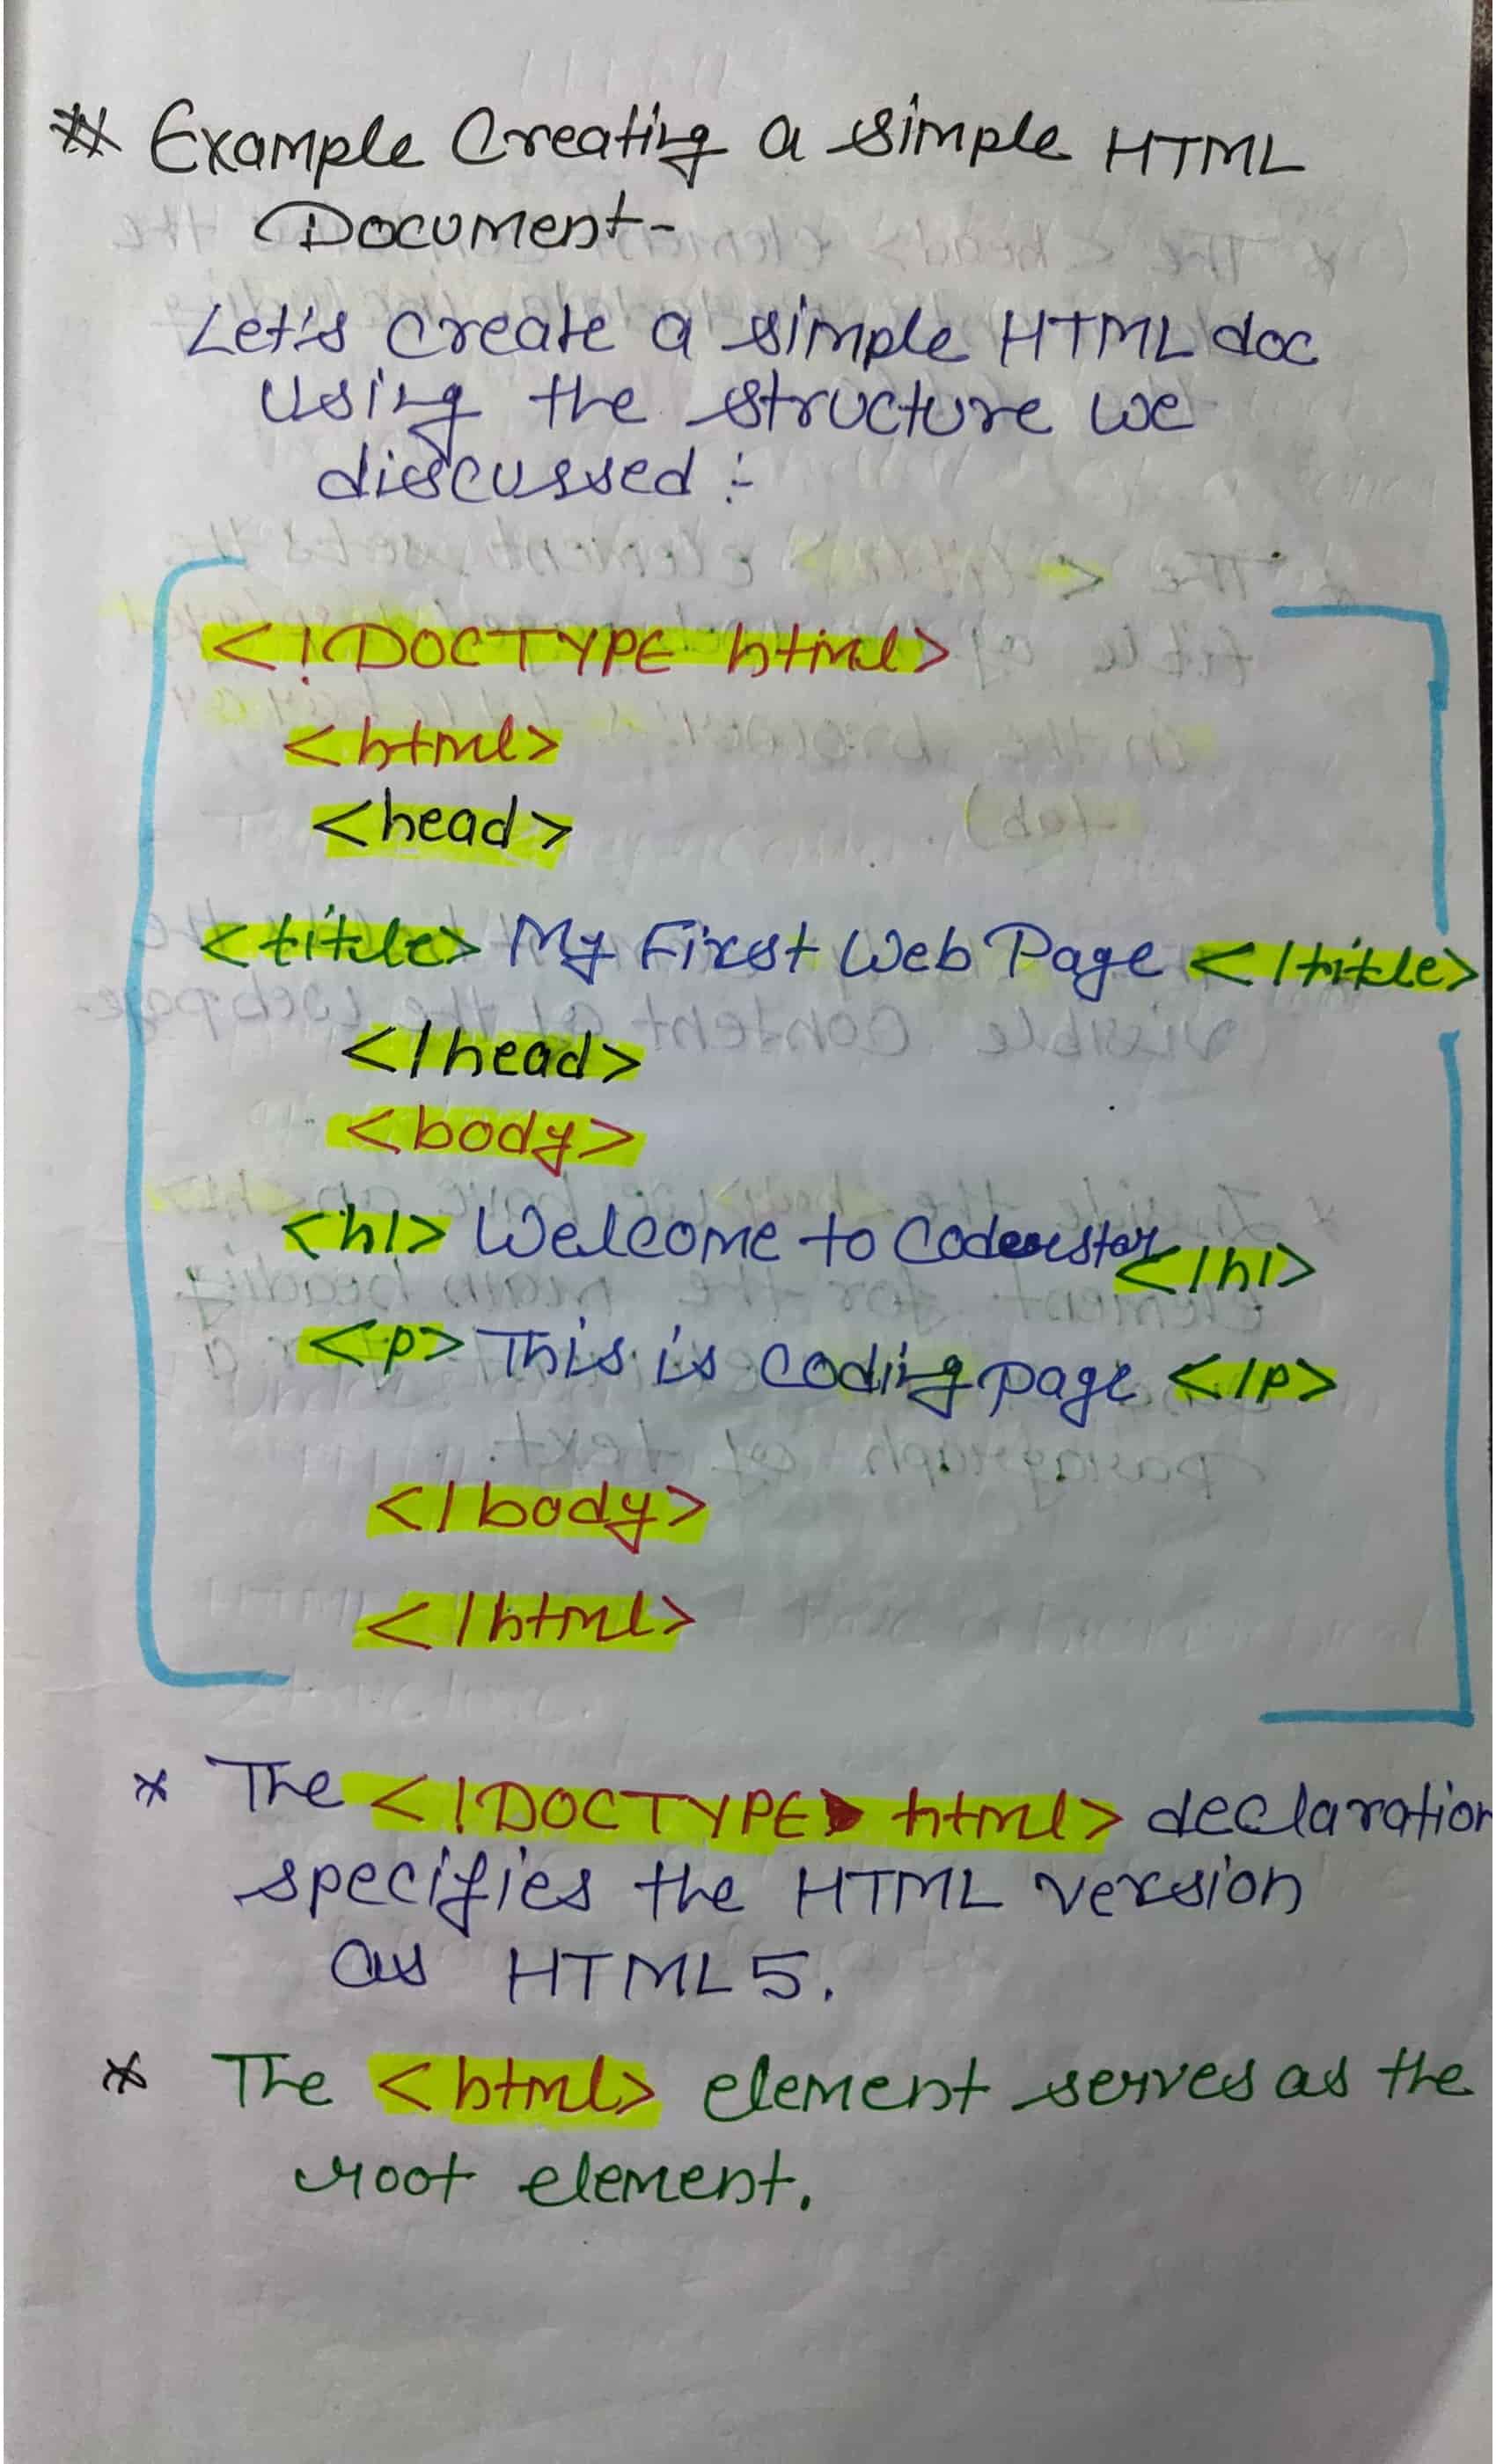 # Example Creating a simple HTML
Document-
Let's create a simple HTML doc
using the structure we
discussed :-
<!DOCTYPE html>
<html>
<head>
<title> My First Web Page </title>
</head>
<body>
<h1> Welcome to </h1>
<p> This is coding page </p>
</body>
</html>
* The <!DOCTYPE html> declaration
specifies the HTML version
as HTML 5.
* The <html> element serves as the
root element.